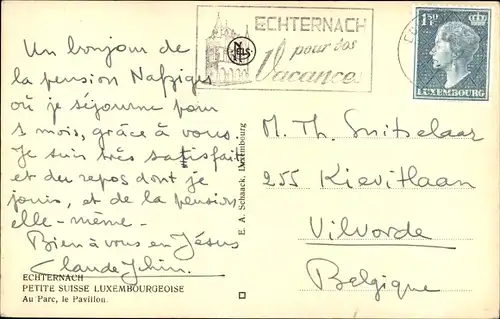 Un bonjour de
la pension Nafziges
où je séjourne pour
1 mois, grâce à vous.
Je suis très satisfait
et du repos dont je
jouis, et de la pension
elle-même.
Bien à vous en Jésus
Claude
ECHTERNACH
PETITE SUISSE LUXEMBOURGEOISE
Au Parc, le Pavillon.
E. A. Schaack, Luxembourg
NELS
ECHTERNACH
pour vos
Vacances
1F50
LUXEMBOURG
M. Th. Snitselaar
255 Kievitlaan
Vilvorde
Belgique